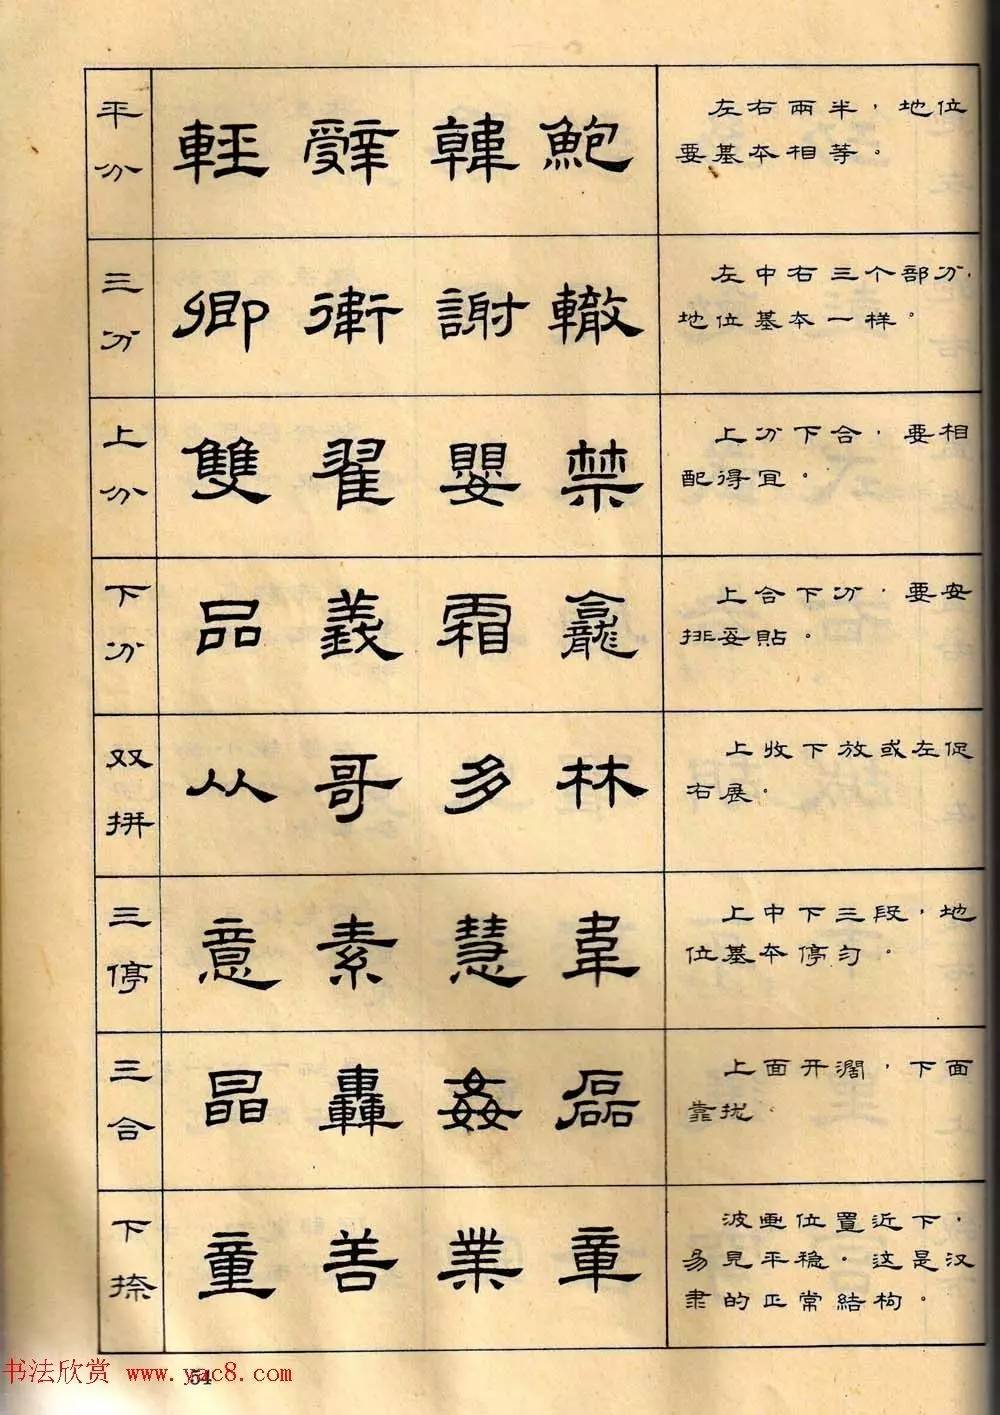 平分
輕 辭 韓 鮑
左右兩半，地位
要基本相等。
三分
卿 衛 謝 轍
左中右三个部分，
地位基本一样。
上分
雙 翟 嬰 禁
上分下合，要相
配得宜。
下分
品 義 霜 龕
上合下分，要安
排妥貼。
双拼
从 哥 多 林
上收下放或左促
右展。
三停
意 素 慧 韋
上中下三段，地
位基本停匀。
三合
晶 轟 姦 磊
上面开濶，下面
靠拢。
下捺
童 善 業 章
波画位置近下，
易見平稳。这是汉
隶的正常結构。
54
书法欣赏 www.yac8.com